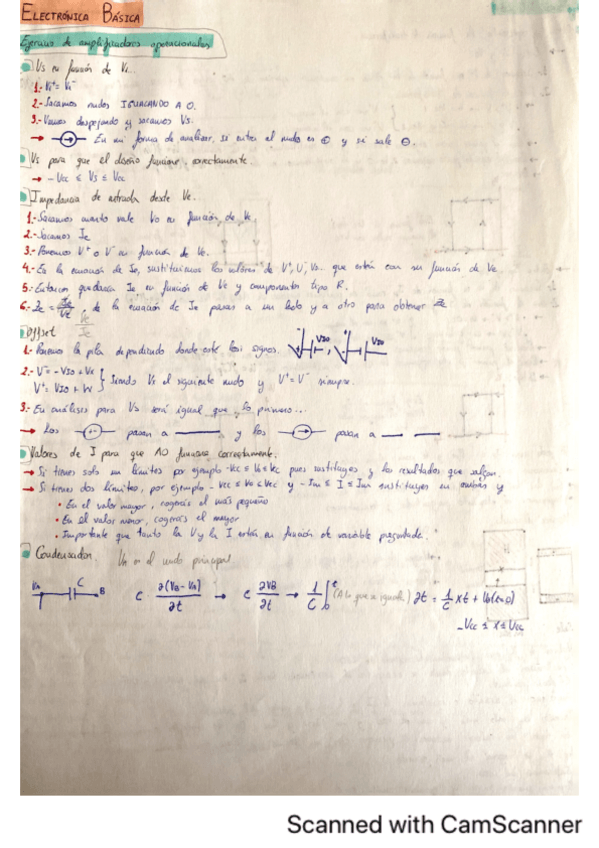 ELECTRÓNICA BÁSICA
Ejercicios de amplificadores operacionales
Vs en función de Vi...
1.- Vi⁺ = Vi⁻
2.- Sacamos nudos IGUALANDO A 0.
3.- Vamos despejando y sacamos Vs.
→ En mi forma de analizar, si entra al nudo es ⊕ y si sale ⊖.
Vs para que el diseño funcione correctamente.
→ -Vcc ≤ Vs ≤ Vcc
Impedancia de entrada desde Ve.
1.- Sacamos cuanto vale Vo en función de Ve
2.- Sacamos Ie
3.- Ponemos V⁺ o V⁻ en función de Ve.
4.- En la ecuación de Ie, sustituimos los valores de V⁺, V⁻, Vo... que están con su función de Ve
5.- Entonces quedará Ie en función de Ve y componentes tipo R.
6.- de la ecuación de Ie pasas a un lado y a otro para obtener Ze
Ve
Ie
Offset
1.- Ponemos la pila dependiendo donde este los signos. VIO, VIO
2.- V⁻ = -VIO + Vx
V⁺ = VIO + Vx } Siendo Vx el siguiente nudo y V⁺ = V⁻ siempre.
3.- En análisis para Vs será igual que lo primero...
→ Los pasan a y los pasan a
Valores de I para que AO funcione correctamente.
→ Si tienes solo un límites por ejemplo -Vcc ≤ Vo ≤ Vcc pues sustituyes y los resultados que salgan.
→ Si tienes dos límites, por ejemplo -Vcc ≤ Vo ≤ Vcc y -Im ≤ I ≤ Im sustituyes en ambas y
• En el valor mayor, cogerás el más pequeño
• En el valor menor, cogerás el mayor
• Importante que tanto la V y la I están en función de variable preguntada.
Condensador. VA es el nudo principal
VA C B C · ∂(VB - VA)/∂t → C ∂VB/∂t → 1/C ∫₀ᵗ (A lo que a iguala) ∂t = 1/C xt + Vo(t=0)
-Vcc ≤ x ≤ Vcc
Scanned with CamScanner